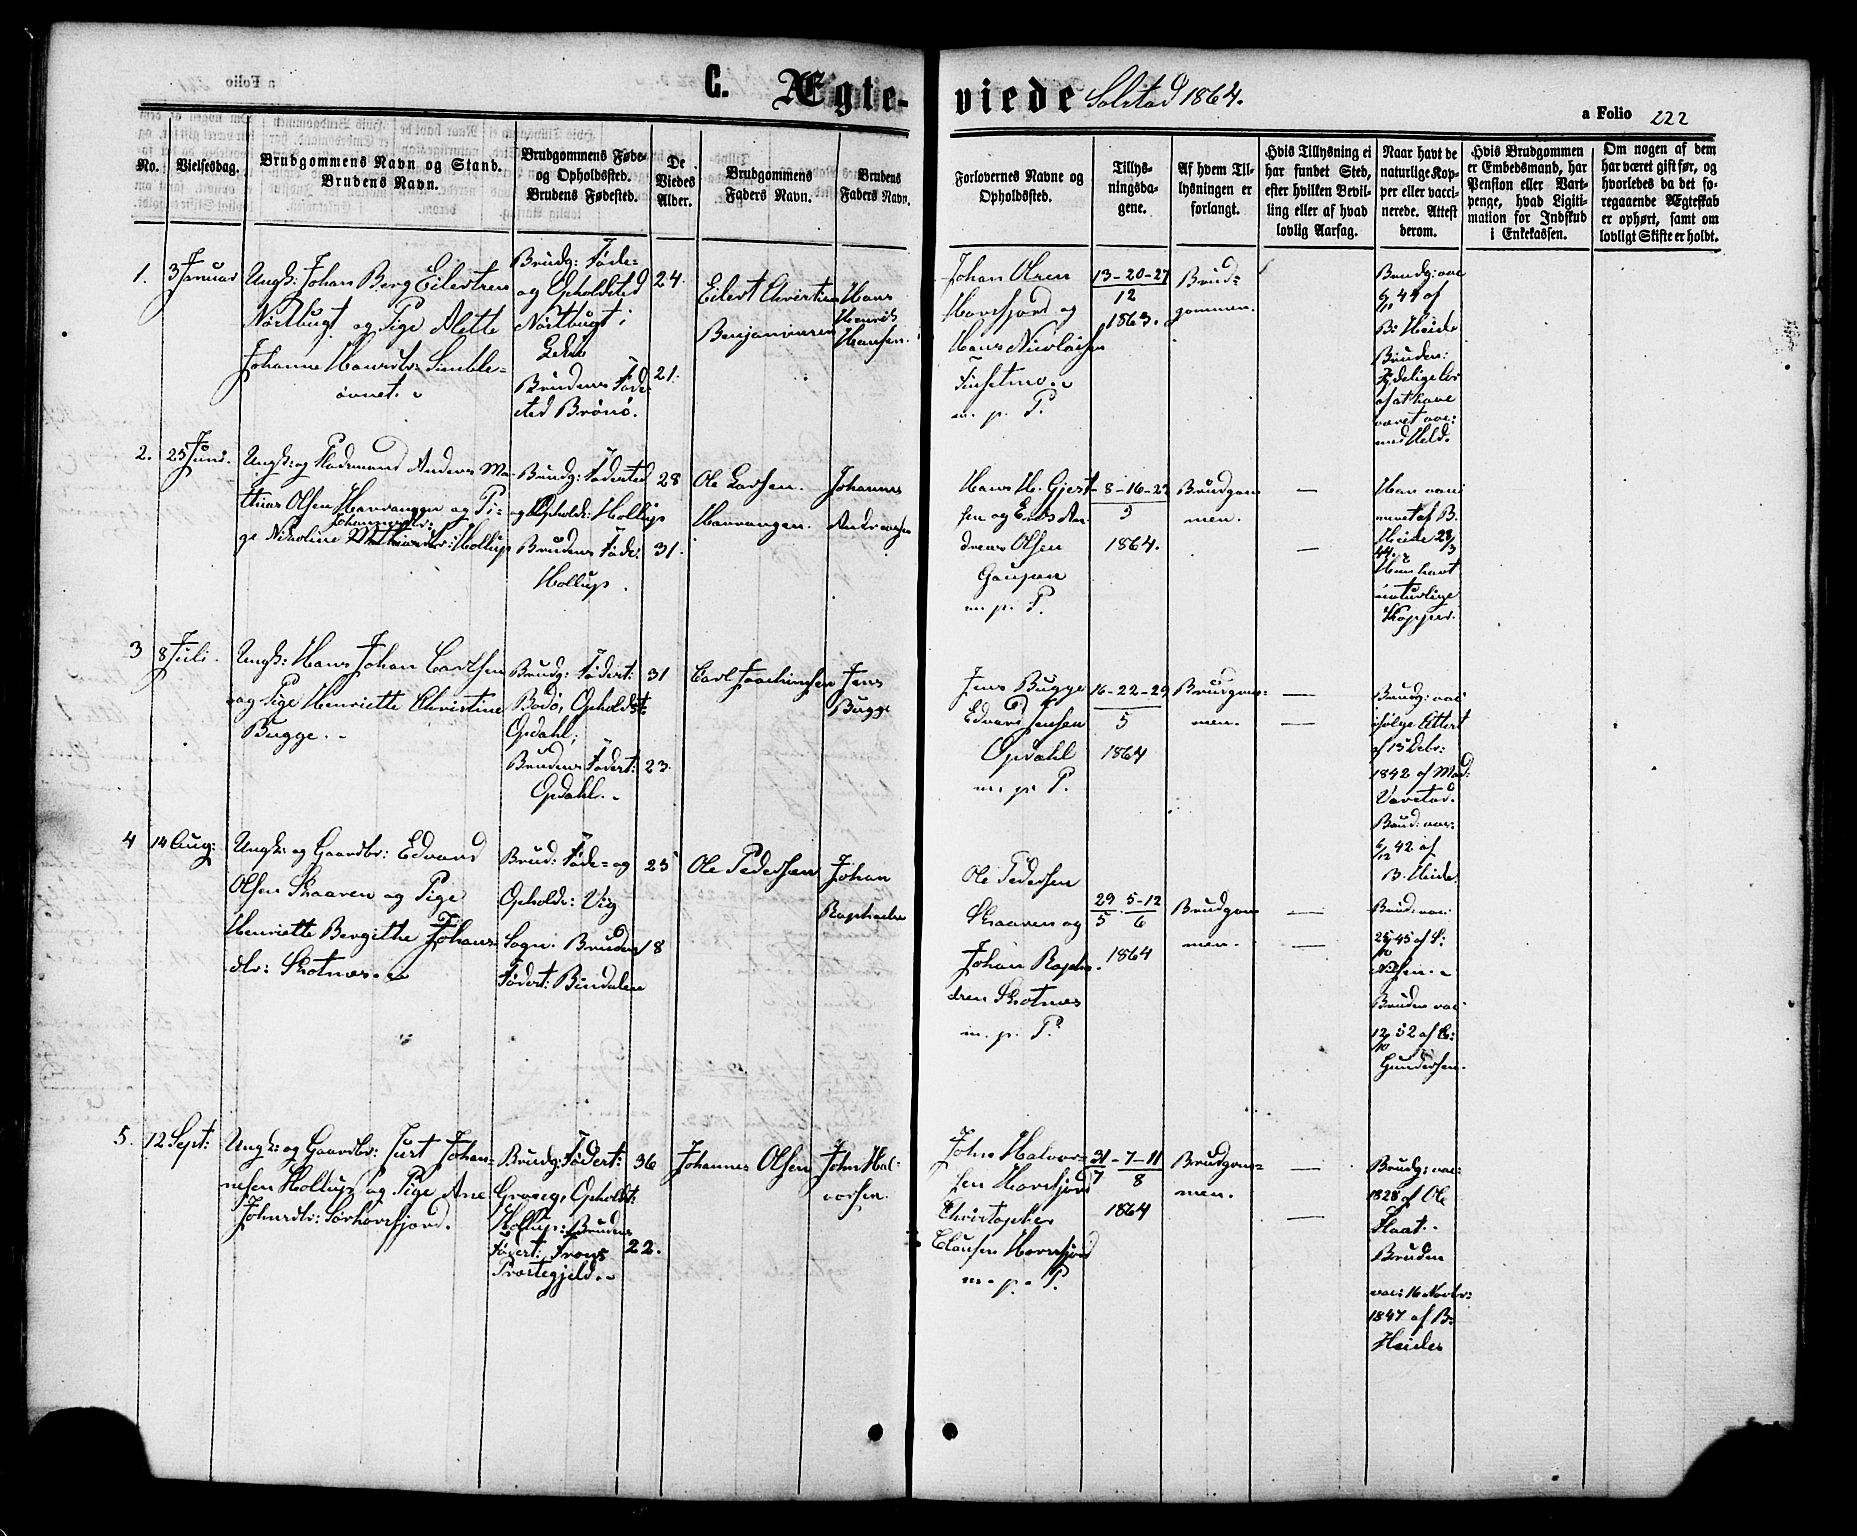 C. Ægte-
viede Solstad 1864.
a Folio 222
No.
Vielsesdag.
Brudgommens Navn og Stand.
Brudens Navn.
Brudgommens Føde-
og Opholdssted.
Brudens Fødested.
De
Viedes
Alder.
Brudgommens
Faders Navn.
Brudens
Faders Navn.
Forlovernes Navne og
Opholdssted.
Tillys-
ningsda-
gene.
Af hvem Til-
lysningen er
forlangt.
Hvis Tillysning ei
har fundet Sted,
efter hvilken Bevil-
ling eller af hvad
lovlig Aarsag.
Naar havt de
naturlige Kop-
per eller vacci-
nerede. Attest
derom.
Hvis Brudgommen
er Embedsmand, har
Pension eller Vart-
penge, hvad Ligiti-
mation for Indskud
i Enkekassen.
Om nogen af dem
har været gift før, og
hvorledes da det fo-
regaaende Ægteskab
er ophørt, samt om
lovligt Skifte er holdt.
1.
3 Januar
Ungk: Johan Berg Eilertsen
Nordbugt og Pige Alette
Johanne Hansdtr:
øvnet.
Brudg: Føde-
og Opholdsted
Nordbugt i
Brudens Føde-
sted Brønø.
24.
21.
Eilert Christian
Benjaminsen
Hans
Henrik
Hansen.
Johan Olsen
Horsfjord og
Hans Nicolaisen
m. p. P.
13-20-27
12
1863.
Brud-
gommen.
Brudg: vac
6/11 44 af
B: Heide
Bruden:
af at have
været vac:
med Held.
2.
25 Juni.
Ungk: og Pladsmand Anders Ma-
thias Olsen Harvangen og Pi-
ge Nikoline Johannesdtr: Hollup
Brudg: Fødested
og Opholds: Hollup
Brudens Føde:
Hollup.
28
31.
Ole Larsen
Harvangen.
Johannes
Andreassen
Hans H. Gjert-
sen og An-
dreas Olsen
Gaupen
m. p. P.
8-16-22
5
1864.
Brudgom-
men.
—
—
Han vaxi-
neret af B.
Heide 28/3
44.
Hun havt
naturlige
Kopper.
3
8 Juli.
Ungk: Hans Johan Carlsen
og Pige Henriette Christine
Bugge.
Brudg: Fødest:
Bodø, Opholdst:
Opdahl;
Brudens Fødest:
Opdahl.
31
23.
Carl Joachimsen
Jens
Bugge
Jens Bugge
Edvard Jensen
Opdahl
m. p. P.
16-22-29
5
1864
Brudgom-
men.
—
—
Brudg: vac:
ifølge Attest
af 15 Debr:
1842 af Mad:
Brud: vac:
6/12 42 af
B. Heide
4
14 Aug:
Ungk: og Gaardbr: Edvard
Olsen Skaaren og Pige
Henriette Bergithe Johans-
dtr: Skotnes.
Brud: Føde- og
Opholds: Vig
Sogn. Brudens
Fødest: Bindalen
25
18
Ole Pedersen
Johan
Raphaelsen
Ole Pedersen
Skaaren og
Johan Rapha-
elsen Skotnes
m. p. P.
29 5-12
5 6
1864
Brudgom-
men.
—
—
Brud: vac:
25/10 45 af S:
Nilsen.
Bruden vac:
12/10 52 af C:
Gundersen.
5.
12 Sept:
Ungk: og Gaardbr: Just Johan-
nesen Hollup og Pige Ane
Johnsdtr: Sørhorsfjord.
Brudg: Fødest:
Graveg, Opholdst:
Hollup; Brudens
Fødest:
Præstegjeld.
36
22.
Johannes Olsen
John Hal-
vorsen
John Halvor-
sen Horsfjord
Christopher
Clausen Horsfjord
m. p. P.
31-7-11
7 8
1864
Brudgom-
men.
—
—
Brudg: vac:
1828 af Ole
Bruden
vac: 16 Novbr:
1847 af B.
Heides